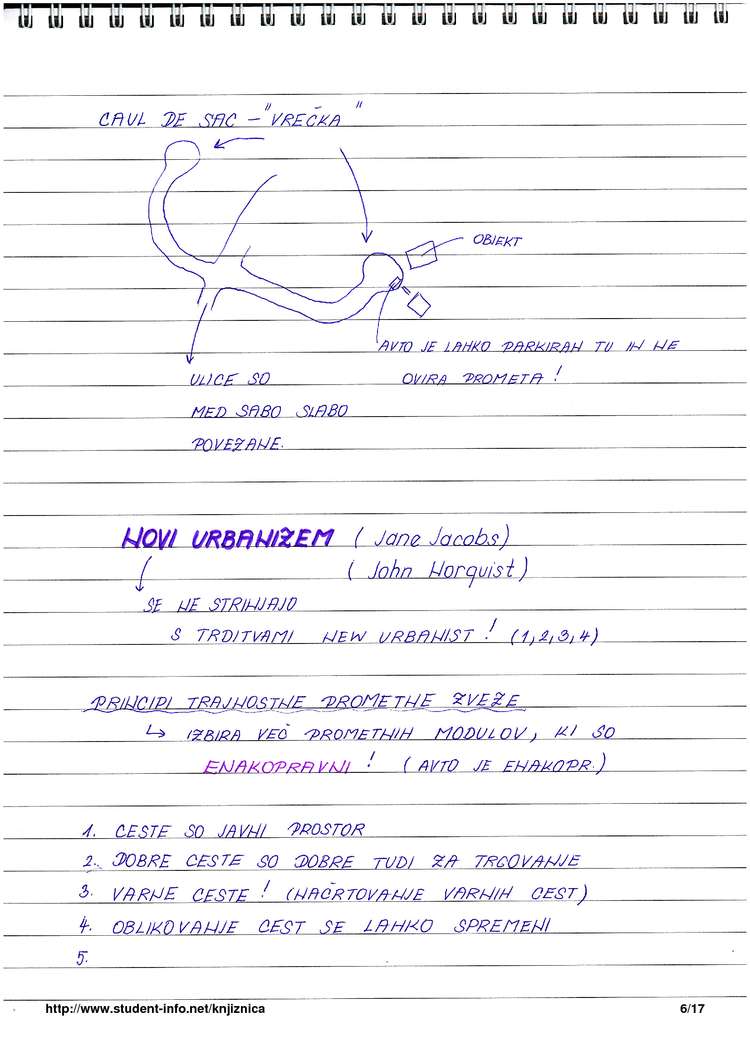 CAUL DE SAC - "VREČKA"
OBJEKT
AVTO JE LAHKO PARKIRAN TU IN NE
OVIRA PROMETA!
ULICE SO
MED SABO SLABO
POVEZANE.
NOVI URBANIZEM (Jane Jacobs)
(John Norquist)
SE NE STRINJAJO
S TRDITVAMI NEW URBANIST! (1,2,3,4)
PRINCIPI TRAJNOSTNE PROMETNE ZVEZE
↳ IZBIRA VEČ PROMETNIH MODULOV, KI SO
ENAKOPRAVNI! (AVTO JE ENAKOPR.)
1. CESTE SO JAVNI PROSTOR
2. DOBRE CESTE SO DOBRE TUDI ZA TRGOVANJE
3. VARNE CESTE! (NAČRTOVANJE VARNIH CEST)
4. OBLIKOVANJE CEST SE LAHKO SPREMENI
5.
http://www.student-info.net/knjiznica
6/17